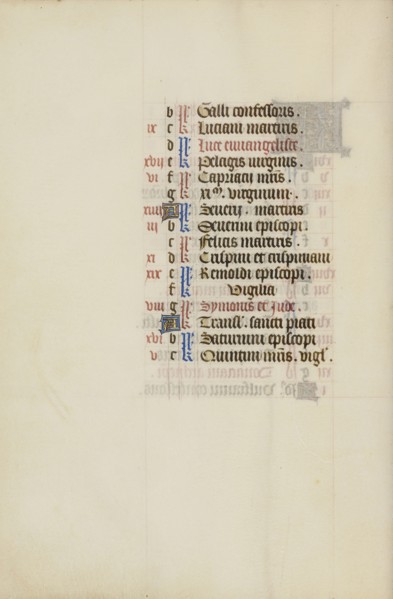 b kl Galli confessoris.
ix c kl Luciani martiris.
d kl Luce ewangeliste.
xvii e kl Pelagii virginis.
vi f kl Capriacii mris.
g kl xi m. virginum.
xiiii A kl Severii. martiris
iii b kl Severini episcopi.
c kl Felicis martiris.
xi d kl Crispini et crispiniani
xix e kl Remoldi episcopi.
f kl Vigilia
viii g kl Symonis et Jude.
A kl Transl. sancti piati
xvi b kl Saturnini episcopi
v c kl Quintini mris. vigl.